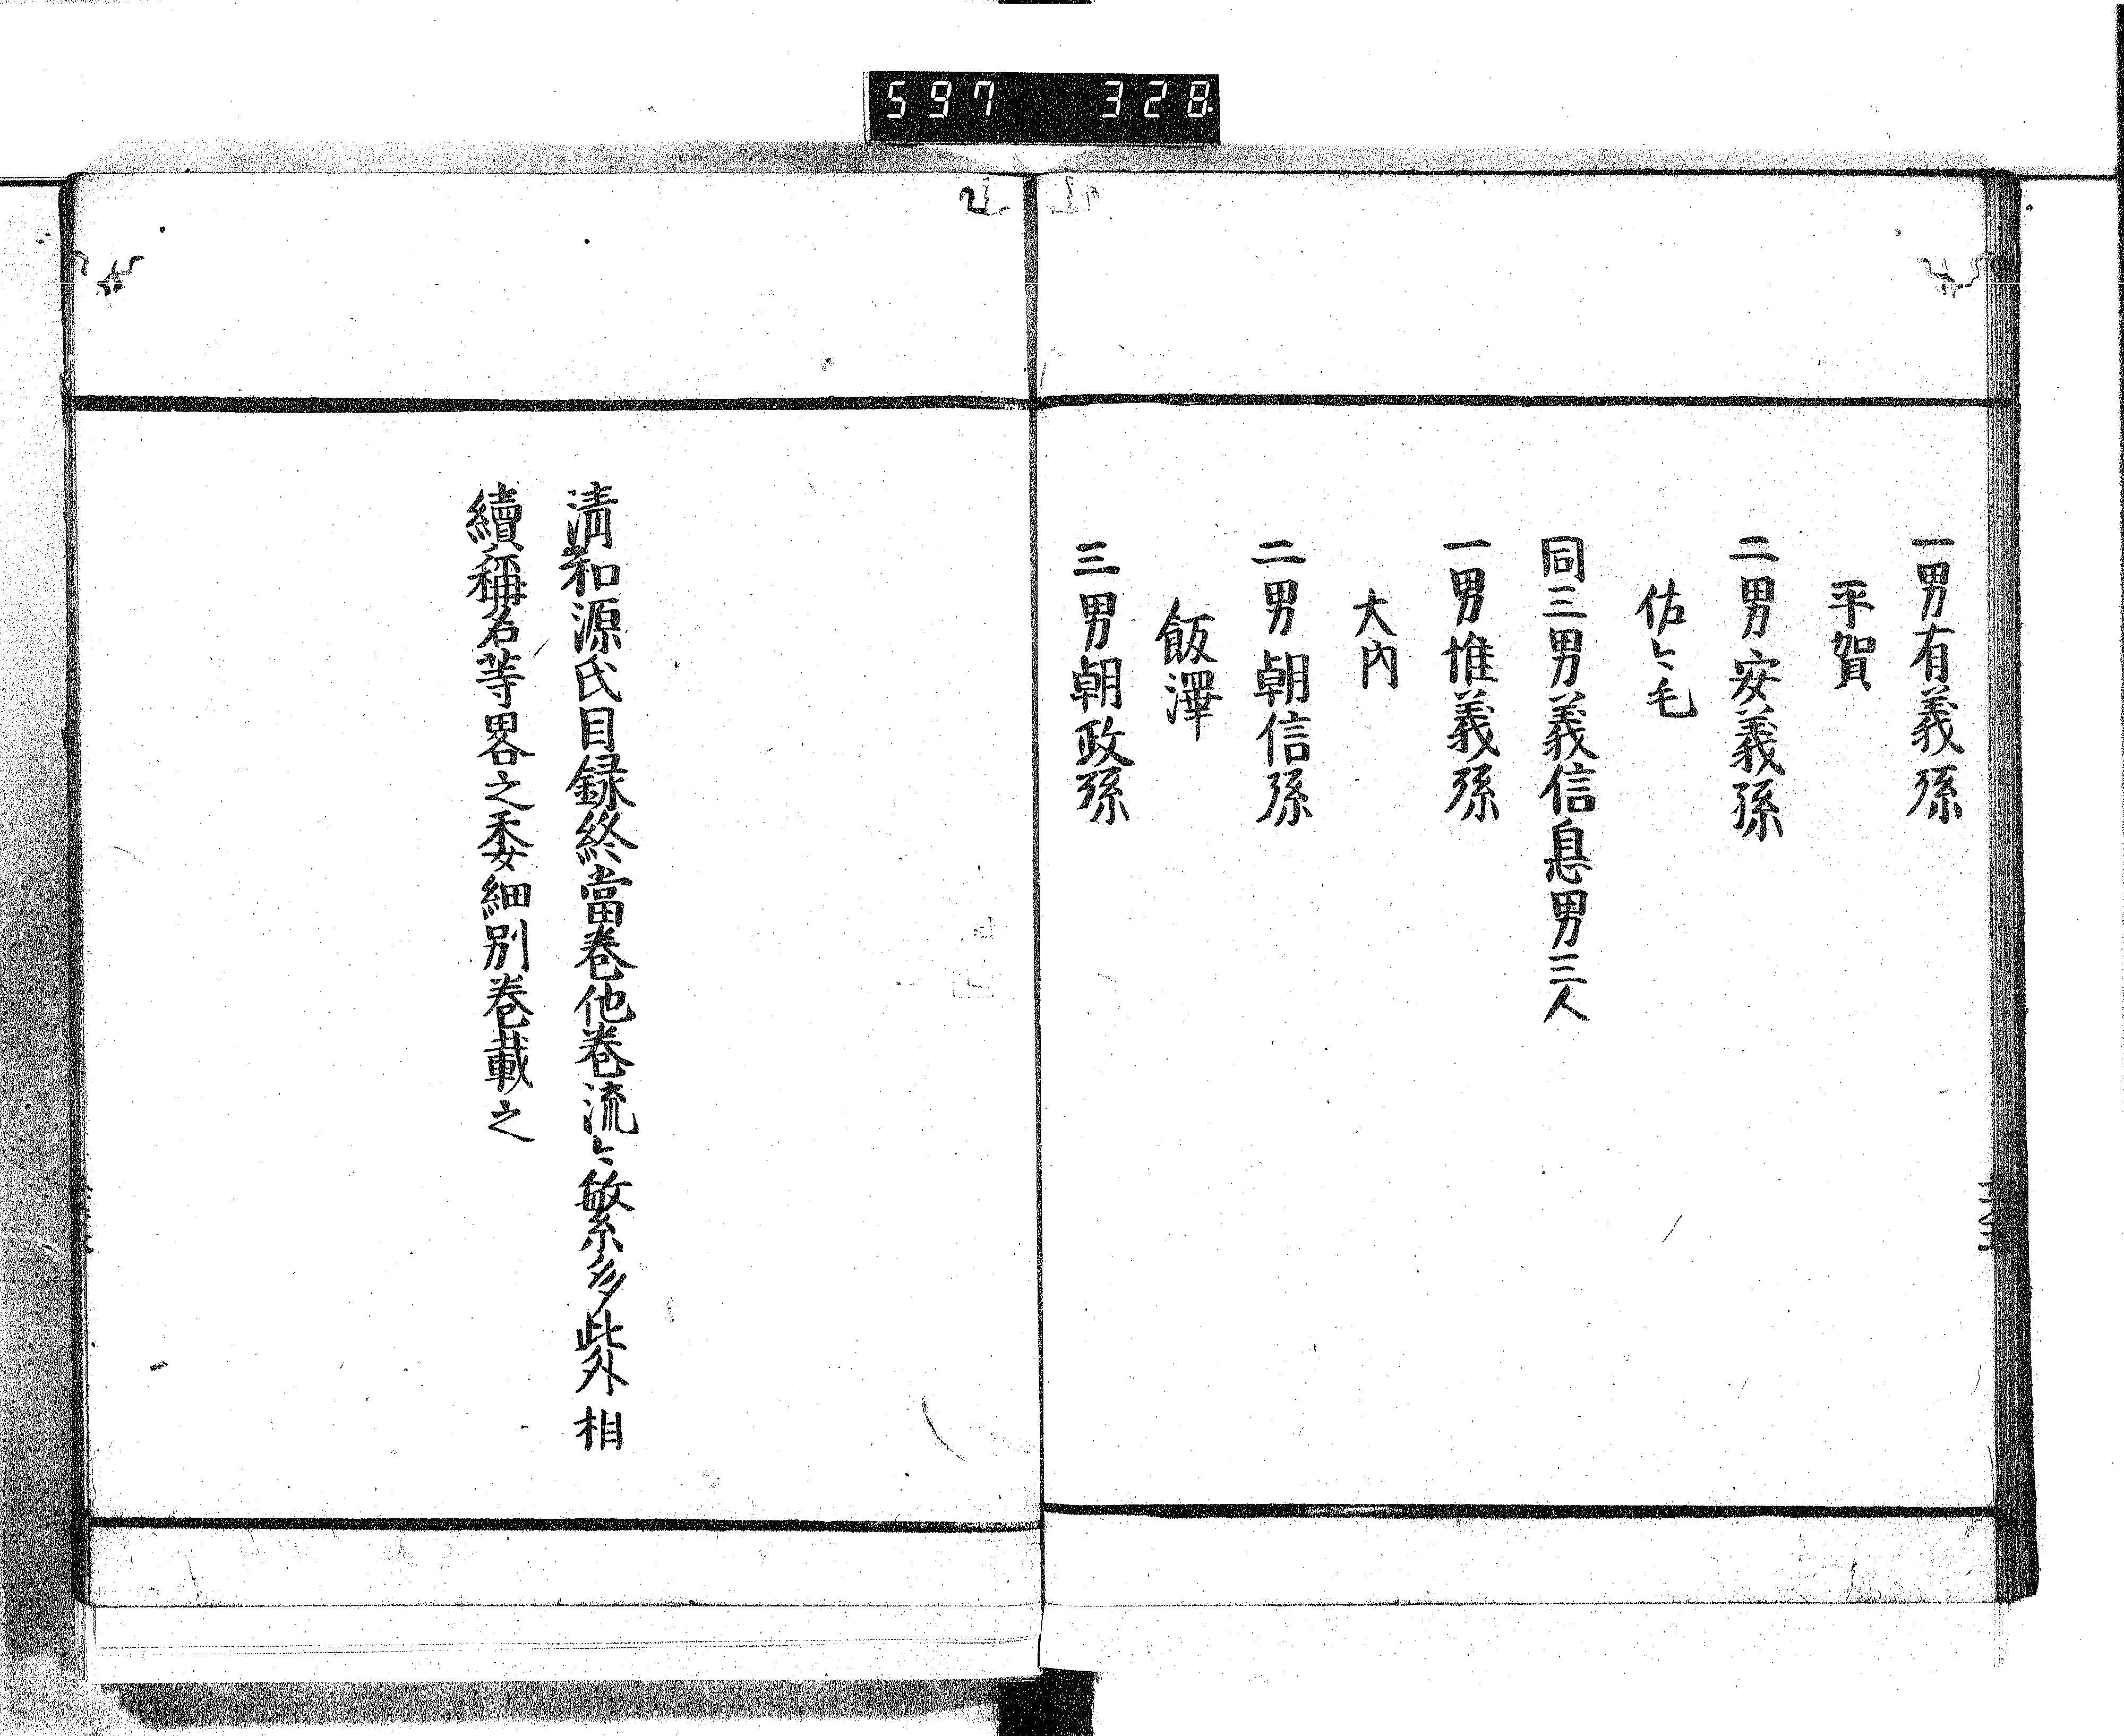 597 328
一男有義孫
平賀
二男安義孫
佐〻毛
同三男義信息男三人
一男惟義孫
大內
二男朝信孫
飯澤
三男朝政孫
淸和源氏目録終當卷他卷流〻繁多此外相
續稱名等畧之委細別卷載之